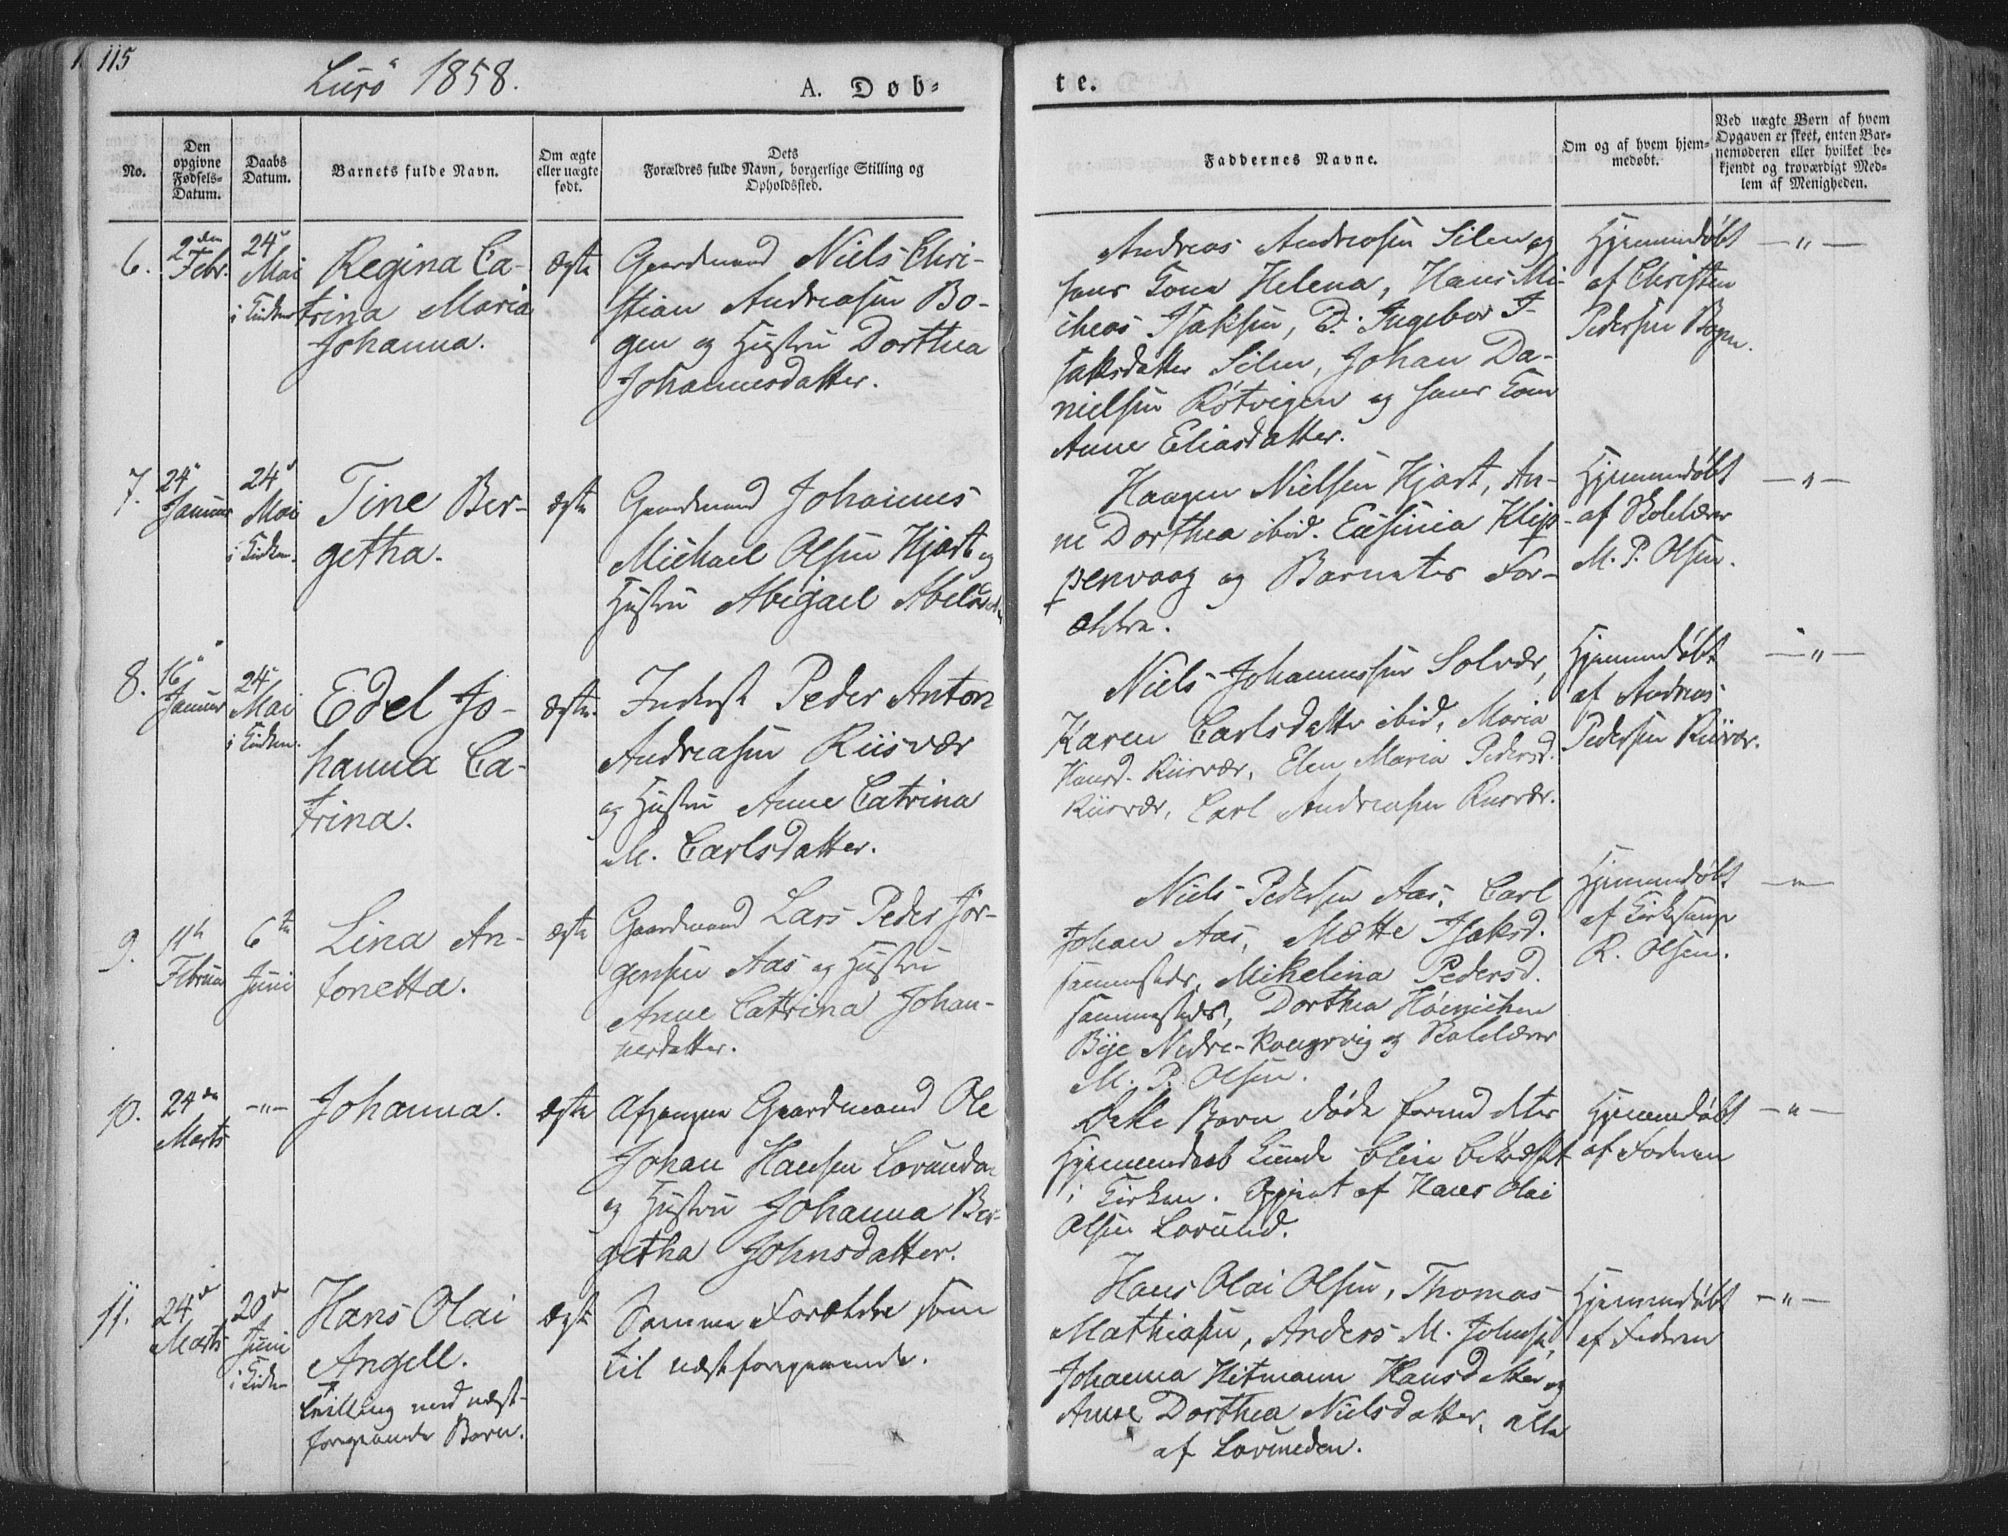 115
Lurö 1858.
A. Døb-
te.
No.
Den opgivne Fødsels-Datum.
Daabs Datum.
Barnets fulde Navn.
Om ægte eller uægte født.
Dets Forældres fulde Navn, borgerlige Stilling og Opholdssted.
Faddernes Navne.
Om og af hvem hjem-medøbt.
Ved uægte Børn af hvem Opgaven er skeet, enten Bar-nemoderen eller hvilket be-kjendt og troværdigt Med-lem af Menigheden.
6.
2den Febr.
24de Mai i Kirken
Regina Ca-
trina Maria
Johanna.
ægte
Gaardmand Niels Chri-
stian Andreasen Bo-
gen og Hustru Dorthea
Johannesdatter.
Andreas Andreasen Silen og
hans Kone Helena, Hans Mi-
cheas Isaksen, P. Ingebor I-
saksdatter Silen, Johan Da-
nielsen Røtvigen og hans Kone
Anne Eliasdatter.
Hjemmedøbt
af Christen
Pedersen Bogen.
—„—
7.
24 Januar
24de Mai i Kirken.
Tine Ber-
getha.
ægte
Gaardmand Johannes
Michael Olsen Hjart og
Hustru Abigael Abelsdtr
Haagen Nielsen Hjart, An-
ne Dorthea ibid. Eusinia Klip-
penvaag og Barnets For-
ældre.
Hjemmedøbt
af Skolelærer
M. P. Olsen.
—„—
8.
16 Januar
24de Mai i Kirken.
Edel Jo-
hanna Ca-
trina.
ægte.
Inderst Peder Anton
Andreasen Riisvær
og Hustru Anne Catrina
M. Carlsdatter.
Niels Johannessen Solvær,
Karen Carlsdatter ibid, Maria
Hansd. Riisvær, Elen Maria Pedersd.
Riisvær, Carl Andreasen Riisvær.
Hjemmedøbt
af Andreas
Pedersen Riisvær.
—„—
9.
11te Februar
6te Juni
Lina An-
tonetta.
ægte
Gaardmand Lars Peder Jör-
gensen Aas og Hustru
Anne Cathrina Johan-
nesdatter.
Niels Pedersen Aas, Carl
Johan Aas, Mætte Isaksd.
sammesteds, Mikelina Pedersd.
sammesteds, Dorthea Höinichen
Bye Nedre-Kongsvig og Skolelærer
M. P. Olsen.
Hjemmedøbt
af Kirkesanger
R. Olsen.
—„—
10.
24de Marts
—„—
Johanna.
ægte
Afgangne Gaardmand Ole
Johan Hansen Lovunden
og Hustru Johanna Ber-
getha Johnsdatter.
Dette Barn døde forend dets
Hjemmedaab kunde blive bekræftet
i Kirken. Opgivet af Hans Olai
Olsen Lovund.
Hjemmedøbt
af Faderen
—„—
11.
24de Marts
20de Juni i Kirken
Hans Olai
Angell.
Tvilling med næst-
foregaaende Barn.
ægte
Samme Forældre som
til næstforegaaende.
Hans Olai Olsen, Thomas
Mathiasen, Anders M. Johnsen,
Johanna Hitmann Hansdatter og
Anne Dorthea Nielsdatter, alle
af Lovunden.
Hjemmedøbt
af Faderen
—„—